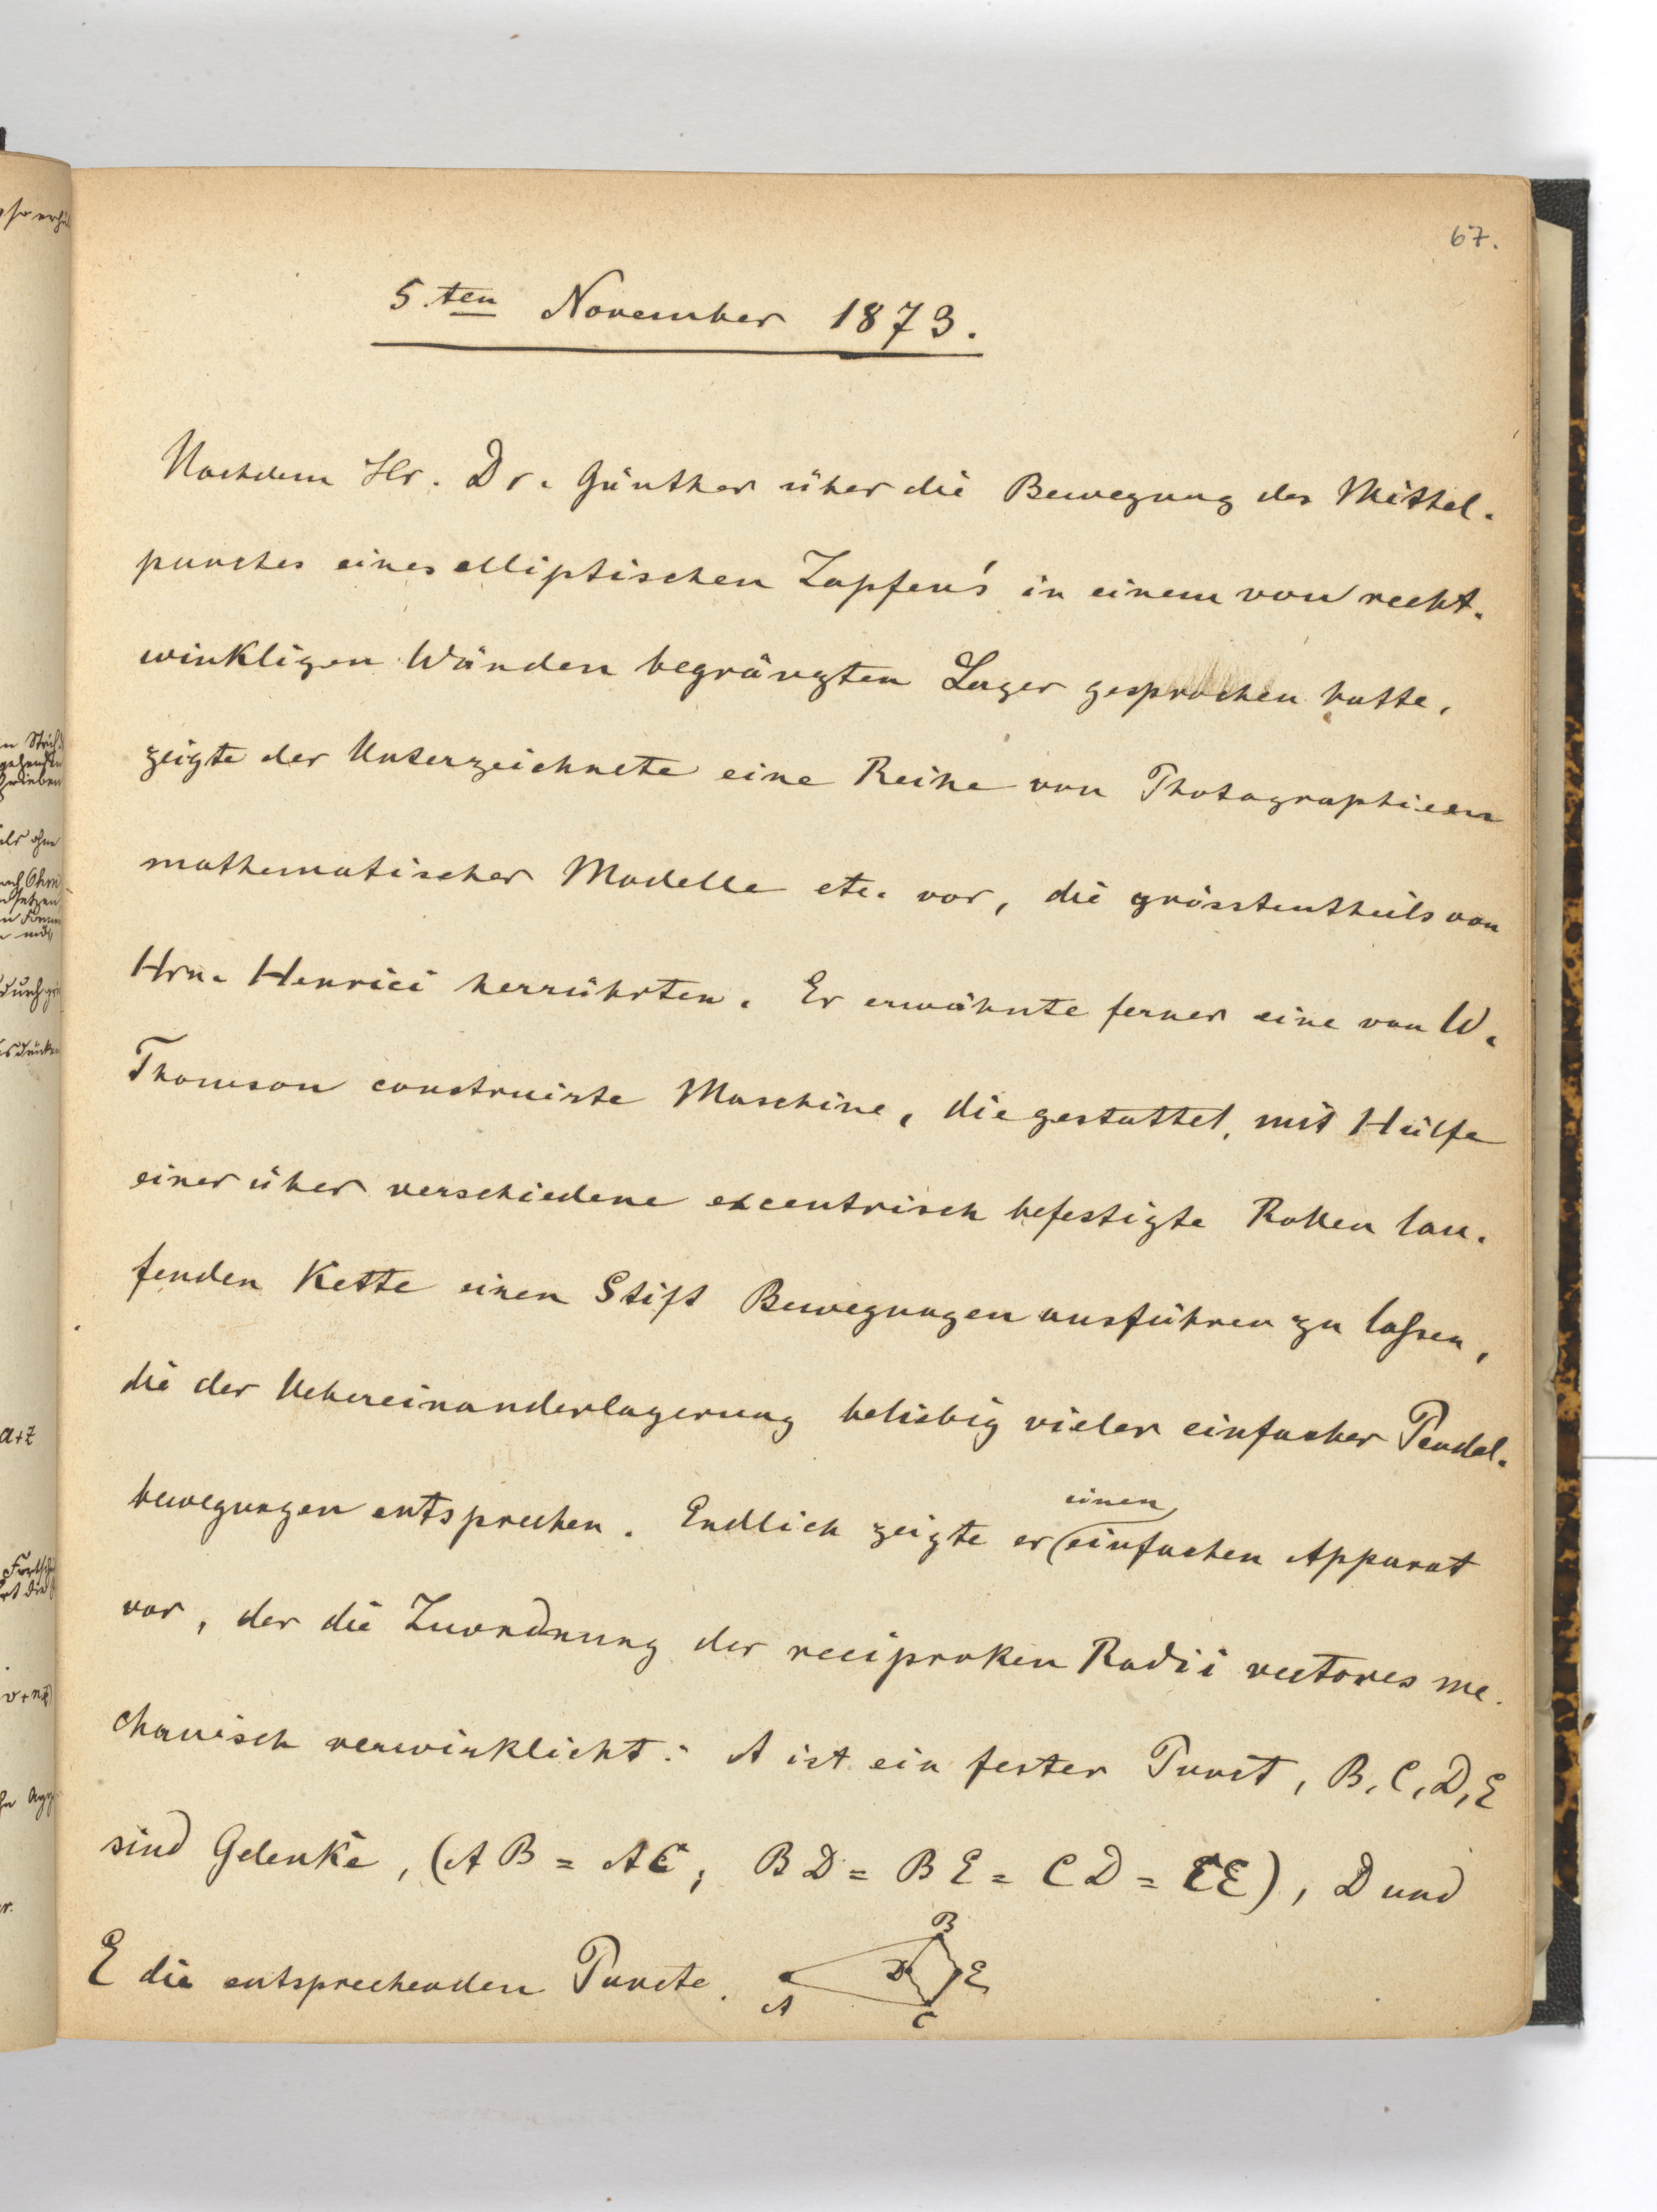 67.
5.ten November 1873.
Nachdem Hr. Dr. Günther über die Bewegung des Mittel-
punctes eines elliptischen Zapfen's in einem von recht-
winkligen Wänden begränzten Lager gesprochen hatte,
zeigte der Unterzeichnete eine Reihe von Photographieen
mathematischer Modelle etc. vor, die grösstentheils von
Hrn. Henrici herrührten. Er erwähnte ferner eine von W.
Thomson construirte Maschine, die gestattet, mit Hülfe
einer über verschiedene excentrisch befestigte Rollen lau-
fenden Kette einen Stift Bewegungen ausführen zu lassen,
die der Uebereinanderlagerung beliebig vieler einfacher Pendel-
bewegungen entsprechen. Endlich zeigte er einen einfachen Apparat
vor, der die Zuordnung der reciproken Radii vectores me-
chanisch verwirklicht: A ist ein fester Punct, B, C, D, E
sind Gelenke, (AB = AC, BD = BE = CD = CE), D und
E die entsprechenden Puncte.
B
D E
A
C
a+z